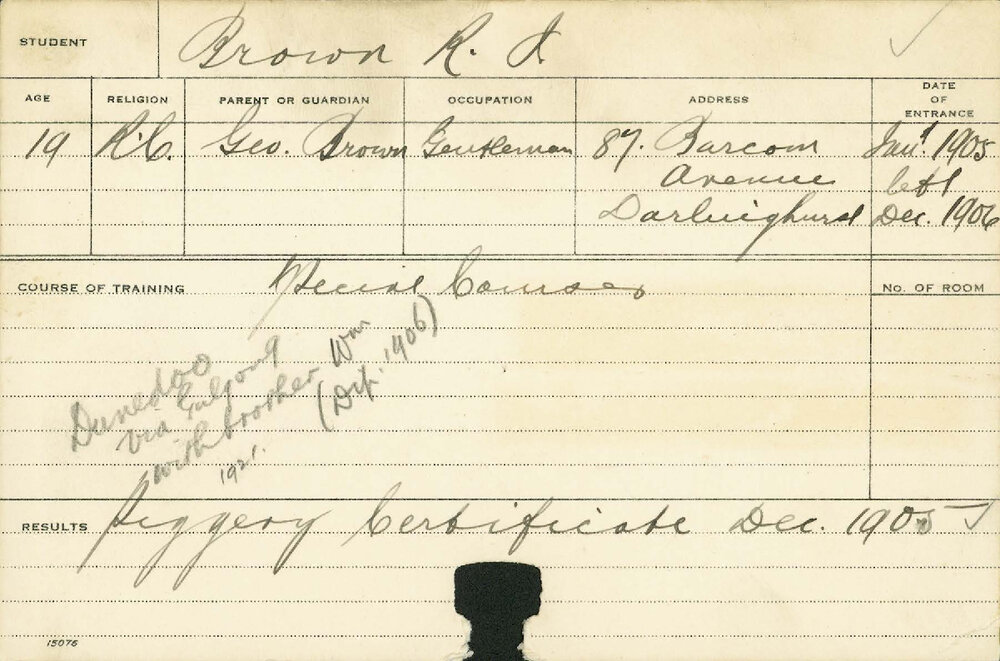 STUDENT Brown R. I
AGE RELIGION PARENT OR GUARDIAN OCCUPATION ADDRESS DATE OF ENTRANCE
19 R.C. Geo. Brown Gentleman 87. Barcom Jany. 1905
Avenue left
Darlinghurst Dec. 1906
COURSE OF TRAINING Special Courses No. OF ROOM
Dunedoo
via Gulgong
with brother Wm
(Dip. 1906)
1921.
RESULTS Piggery Certificate Dec. 1905
15076